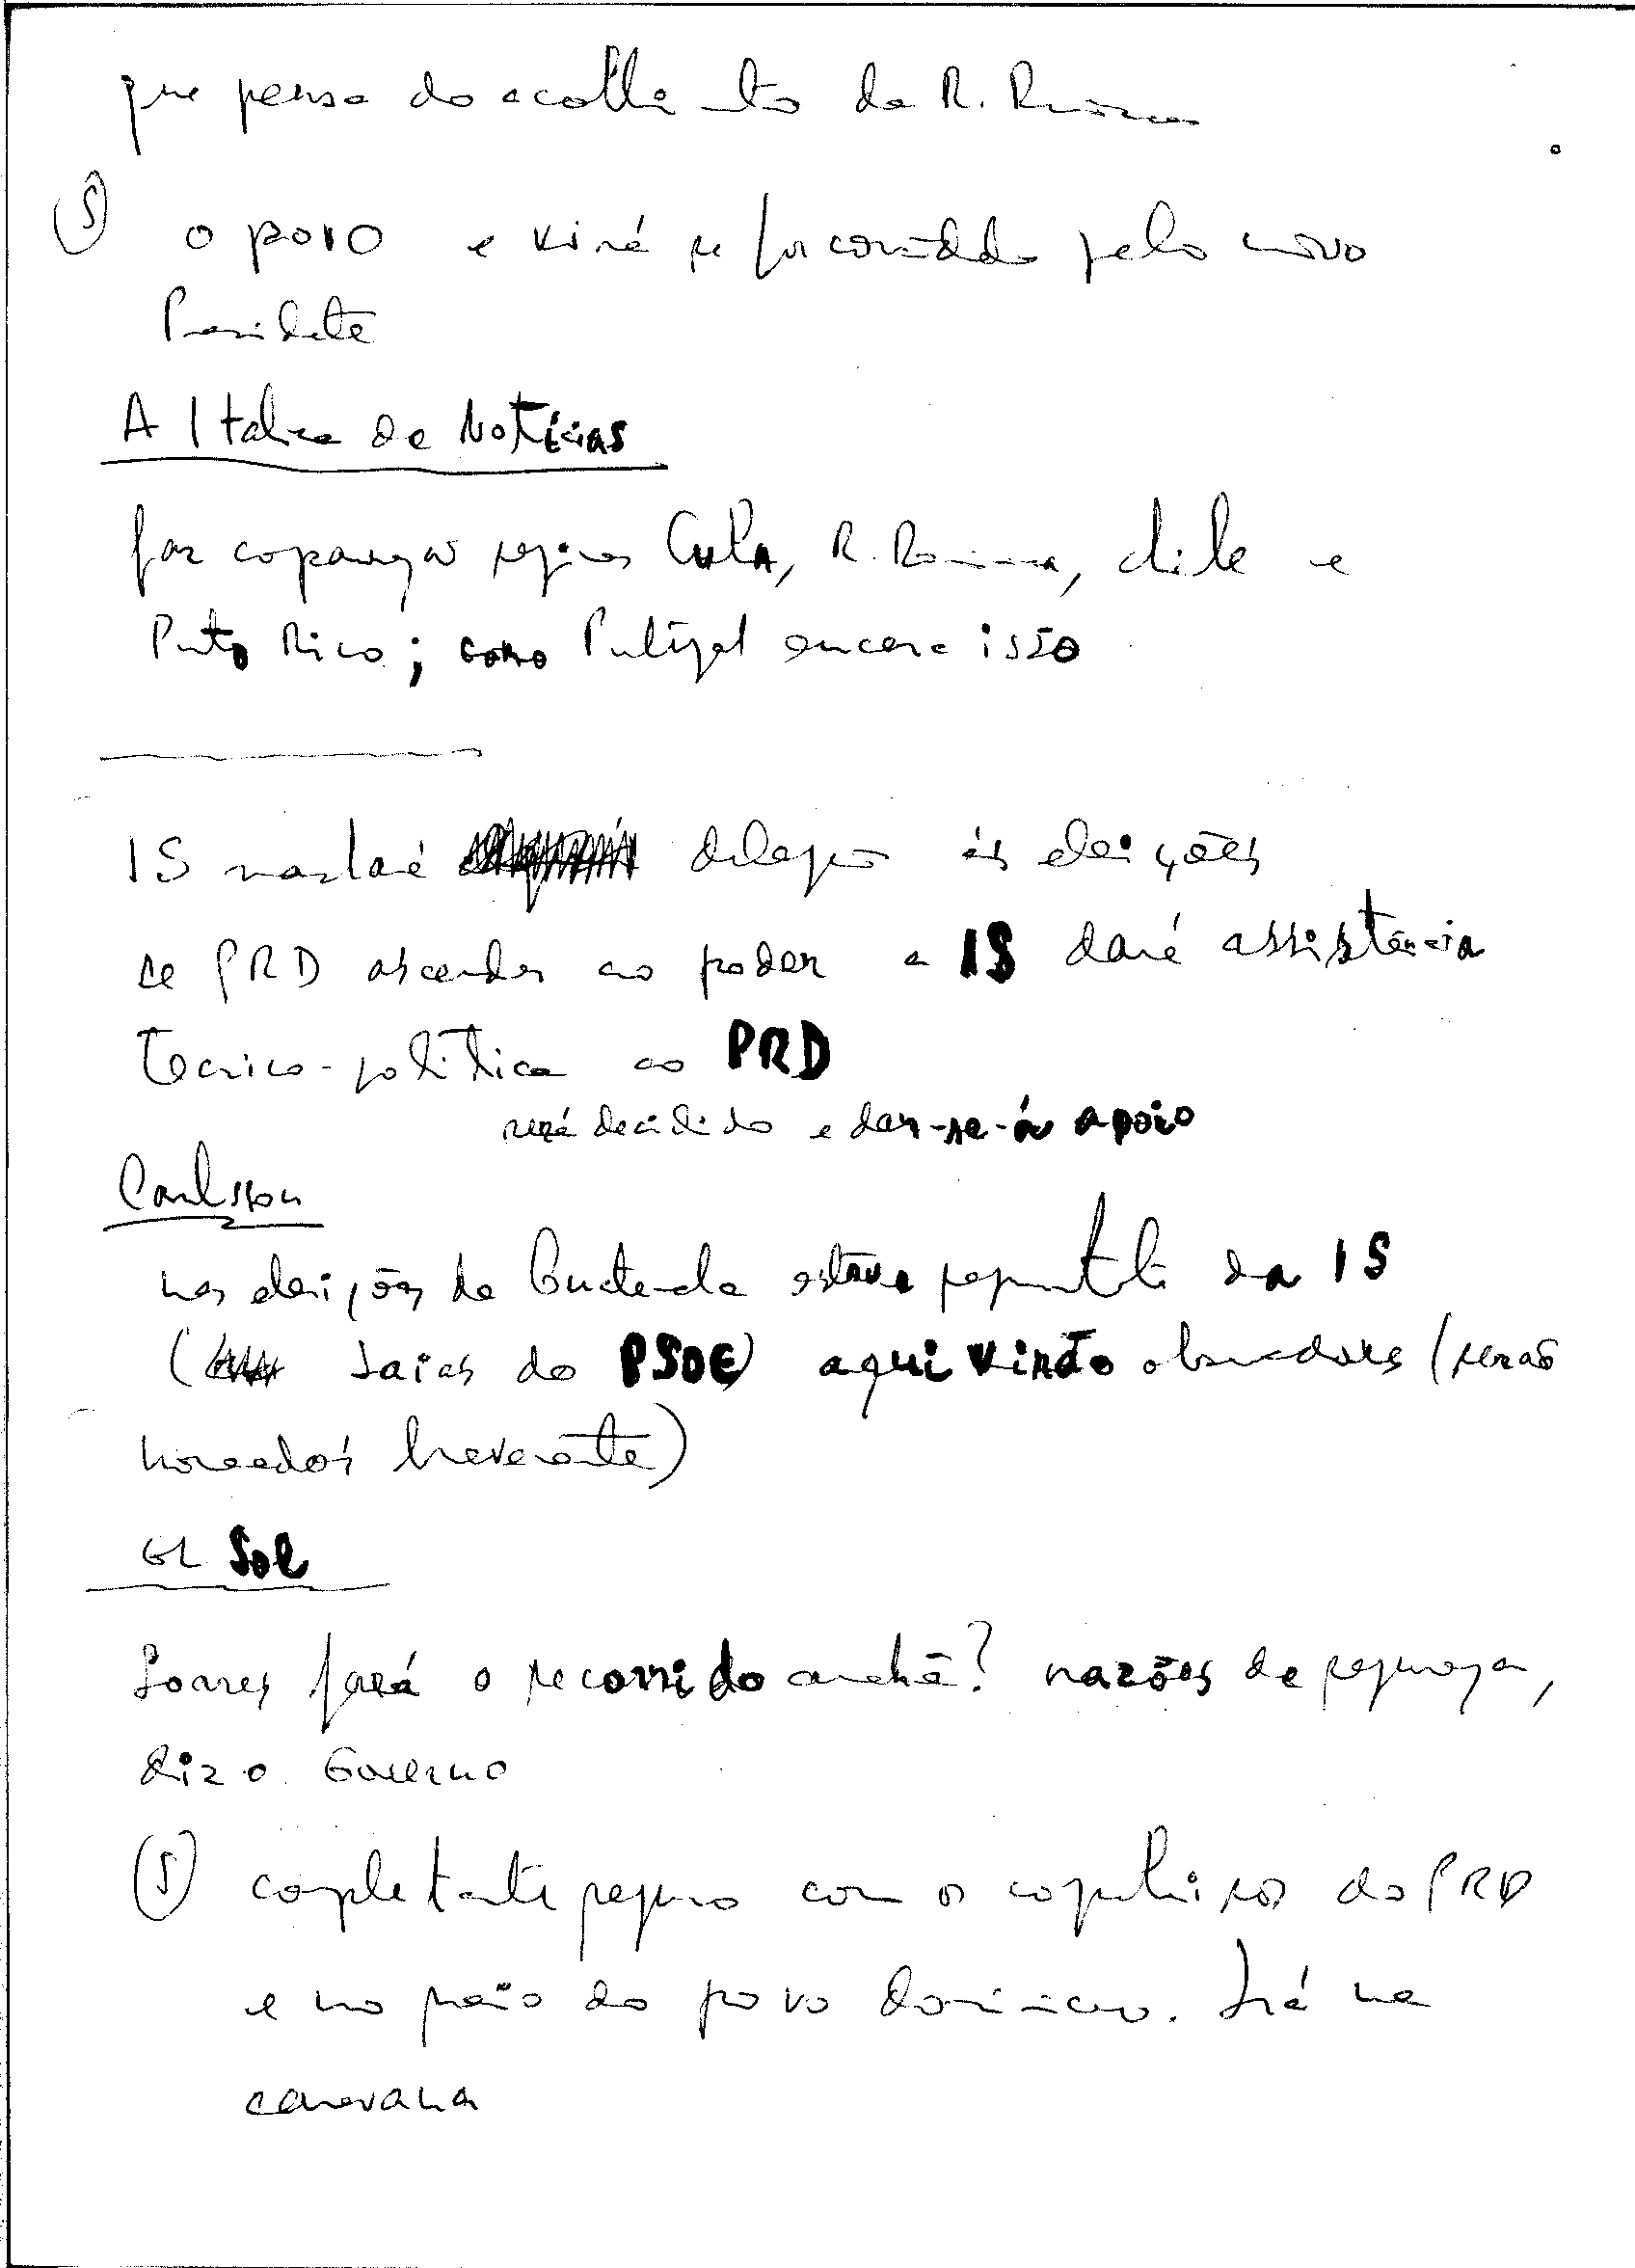 que pensa do acolhimento da R. Dominicana
(S) o povo e virá se for convidado pelo novo
Presidente
A Italiana de Notícias
faz comparação regimes Cuba, R. Dominicana, Chile e
Puto Rico; como Portugal encara isso
IS mandará delegação às eleições
se PRD ascender ao poder a IS dará assistência
Tecnico-politica ao PRD
será decidido e dar-se-á apoio
Carlsson
nas eleições da Guatemala esteve representante da IS
( do PSOE) aqui virão observadores (serão
nomeados brevemente)
El Sol
Soares fará o recorrido amanhã? razões de segurança,
diz o Governo
(S) completamente seguro com os companheiros do PRD
e no meio do povo dominicano. Irá na
caravana